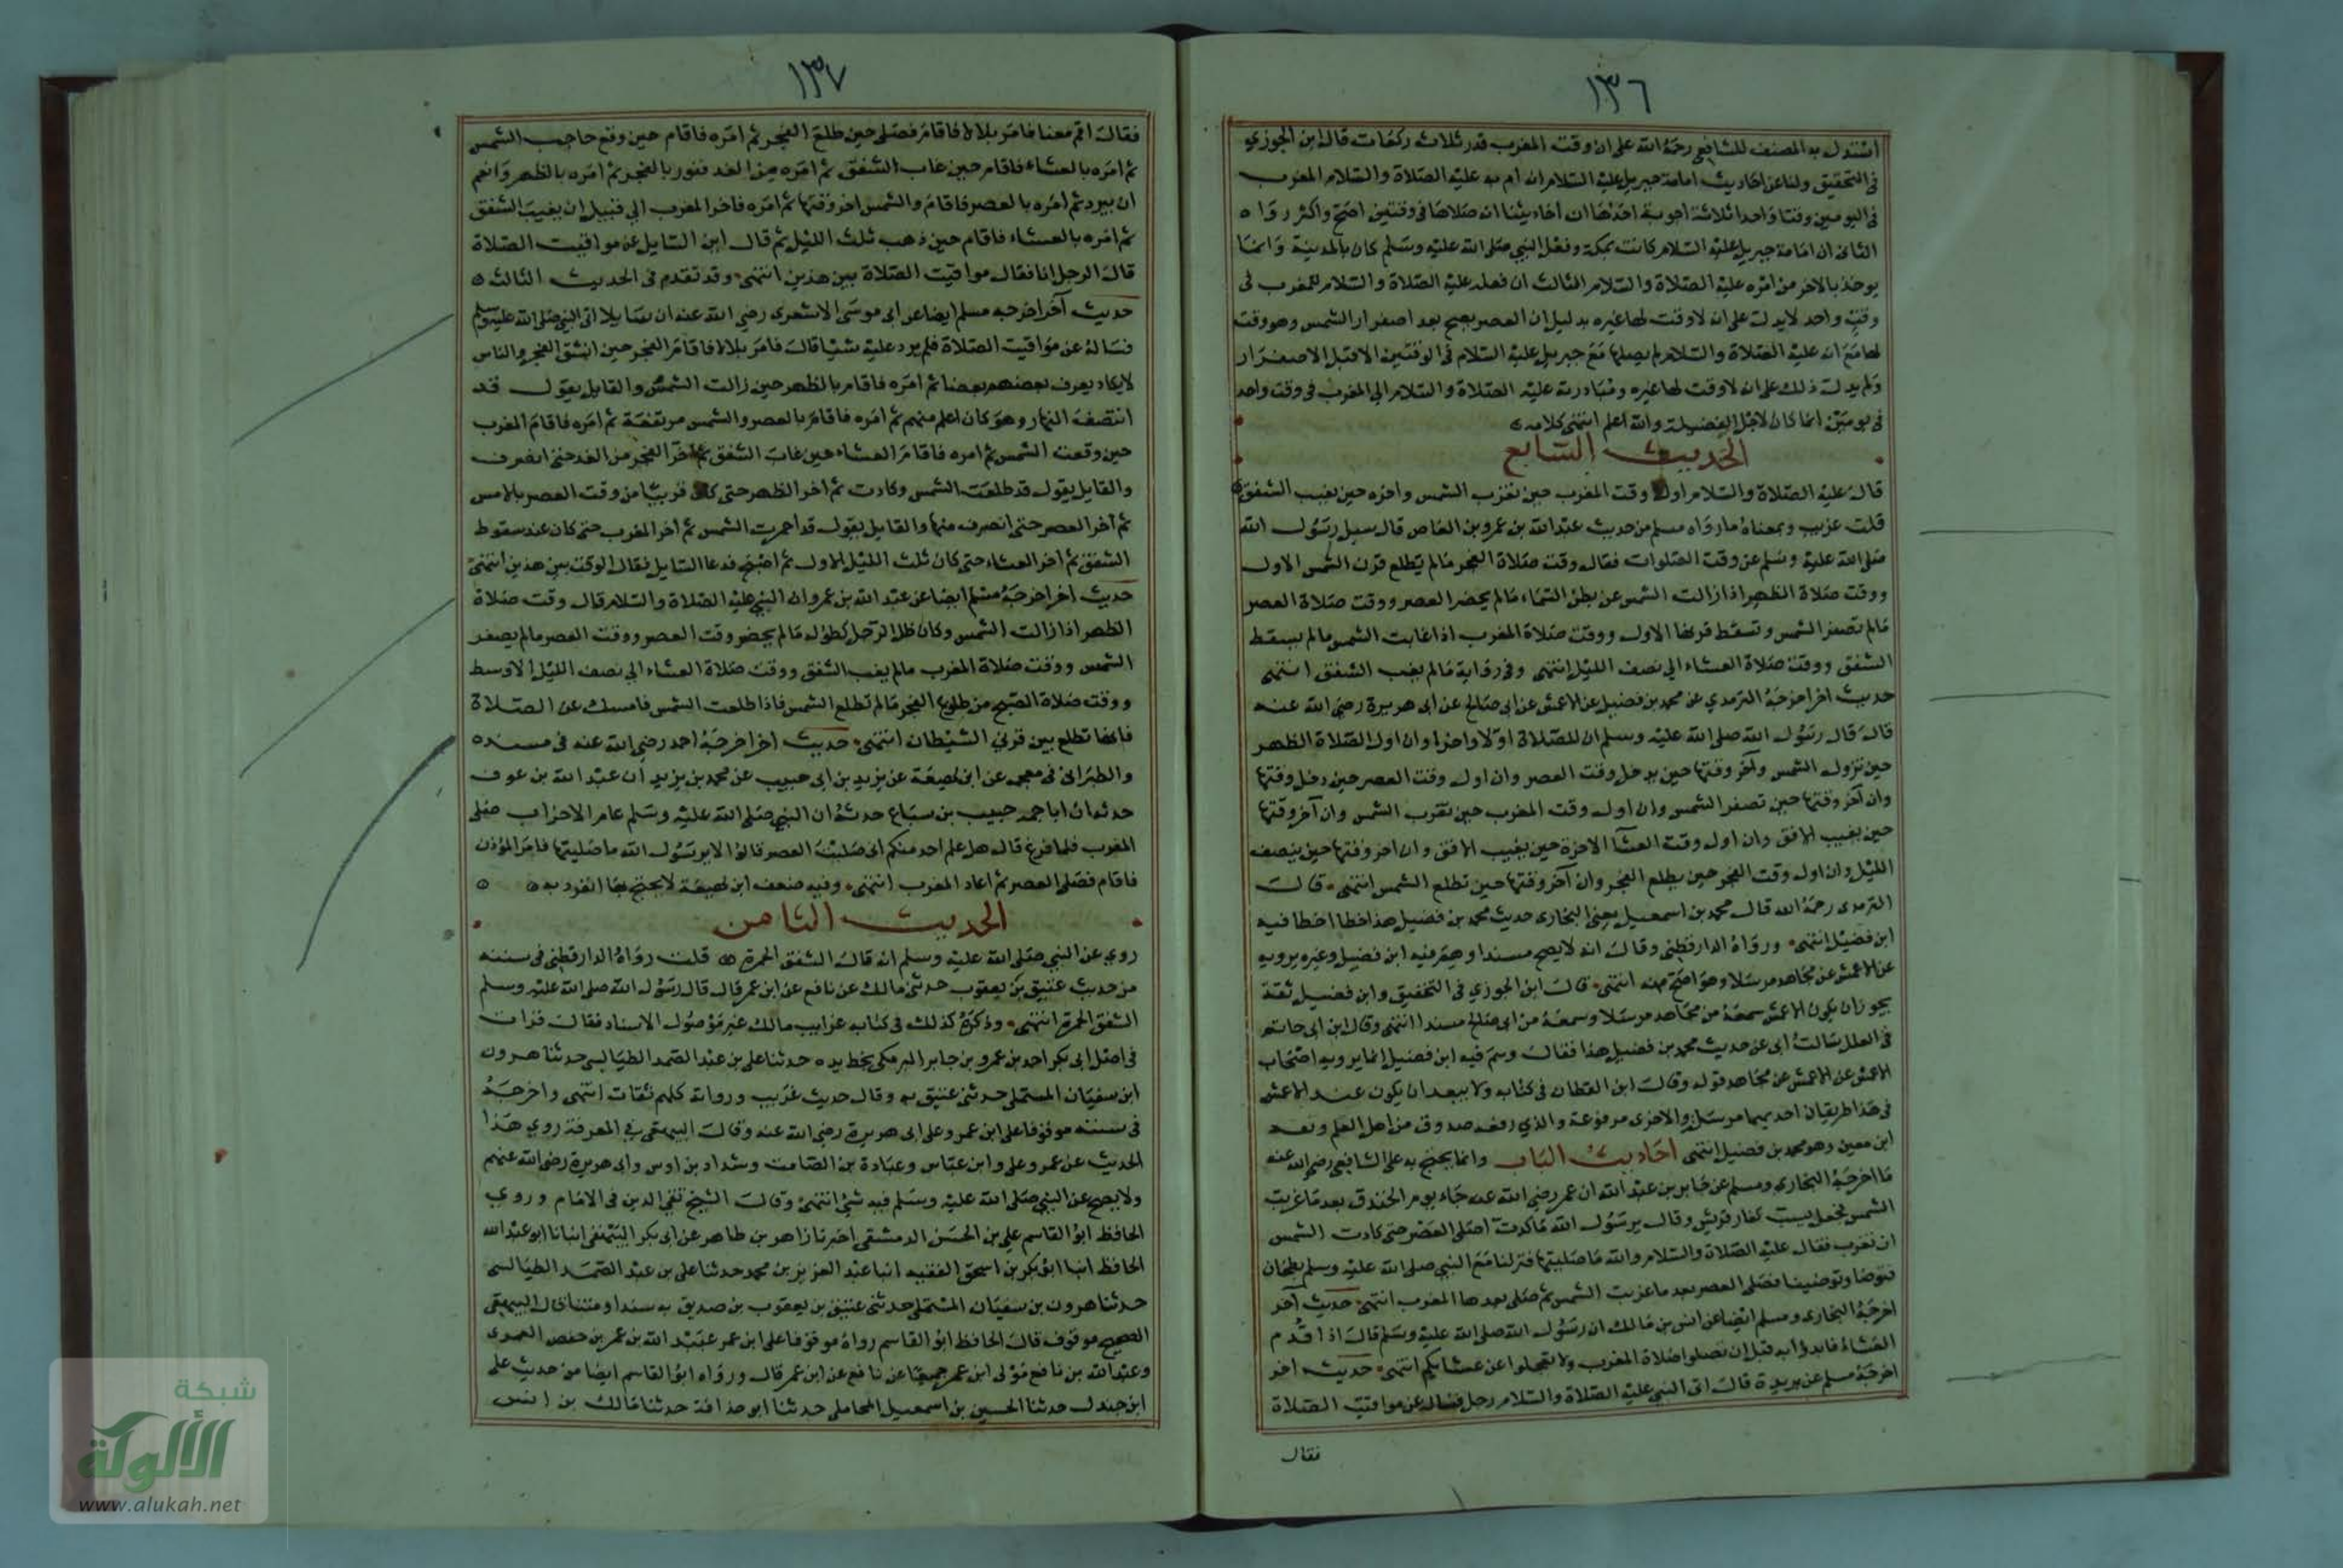 ١٣٦
استدل به المصنف للشافعي رحمه الله على ان وقت المغرب قدر ثلاث ركعات قال ابن الجوزي
في التحقيق ولنا عن احاديث امامة جبريل عليه السلام انه ام به عليه الصلاة والسلام المغرب
في اليومين وقتا واحدا ثلاثة اجوبة احدها ان احاديثنا انه صلاها في وقتين اصح واكثر رواة
الثاني ان امامة جبريل عليه السلام كانت بمكة وفعل النبي صلى الله عليه وسلم كان بالمدينة وانما
يوخذ بالاخر من امره عليه الصلاة والسلام الثالث ان فعله عليه الصلاة والسلام للمغرب في
وقت واحد لا يدل على انه لا وقت لها غيره بدليل ان العصر يصح بعد اصفرار الشمس وهو وقت
لها مع انه عليه الصلاة والسلام لم يصلها مع جبريل عليه السلام في الوقتين الا قبل الاصفرار
ولم يدل ذلك على انه لا وقت لها غيره ومبادرته عليه الصلاة والسلام الي المغرب في وقت واحد
في يومين انما كان لاجل الفضيلة والله اعلم انتهى كلامه
الحديث السابع
قال عليه الصلاة والسلام اول وقت المغرب حين تغرب الشمس واخره حين يغيب الشفق
قلت غريب وبمعناه ما رواه مسلم من حديث عبد الله بن عمرو بن العاص قال سيل رسول الله
صلى الله عليه وسلم عن وقت الصلوات فقال وقت صلاة الفجر ما لم يطلع قرن الشمس الاول
ووقت صلاة الظهر اذا زالت الشمس عن بطن السماء ما لم يحضر العصر ووقت صلاة العصر
ما لم تصفر الشمس وتسقط قرنها الاول ووقت صلاة المغرب اذا غابت الشمس ما لم يسقط
الشفق ووقت صلاة العشاء الي نصف الليل انتهى وفي رواية ما لم يغب الشفق انتهى
حديث اخر اخرجه الترمذي عن محمد بن فضيل عن الاعمش عن ابي صالح عن ابي هريرة رضي الله عنه
قال قال رسول الله صلى الله عليه وسلم ان للصلاة اولا واخرا وان اول الصلاة الظهر
حين تزول الشمس وآخر وقتها حين يدخل وقت العصر وان اول وقت العصر حين دخل وقتها
وان آخر وقتها حين تصفر الشمس وان اول وقت المغرب حين تغرب الشمس وان آخر وقتها
حين يغيب الافق وان اول وقت العشآ الاخرة حين يغيب الافق وان اخر وقتها حين ينصف
الليل وان اول وقت الفجر حين يطلع الفجر وان آخر وقتها حين تطلع الشمس انتهى قال
الترمذي رحمه الله قال محمد بن اسمعيل يعني البخاري حديث محمد بن فضيل هذا خطا اخطا فيه
ابن فضيل انتهى ورواه الدارقطني وقال انه لا يصح مسندا وهم فيه ابن فضيل وغيره يرويه
عن الاعمش عن مجاهد مرسلا وهو اصح منه انتهى قال ابن الجوزي في التحقيق وابن فضيل ثقة
يجوز ان يكون الاعمش سمعه من مجاهد مرسلا وسمعه من ابي صالح مسندا انتهى وقال ابن ابي حاتم
في العلل سالت ابي عن حديث محمد بن فضيل هذا فقال وهم فيه ابن فضيل انما يرويه اصحاب
الاعمش عن الاعمش عن مجاهد قوله وقال ابن القطان في كتابه ولا يبعد ان يكون عند الاعمش
في هذا طريقان احديهما مرسلة والاخرى مرفوعة والذي رفعه صدوق من اهل العلم وثقه
ابن معين وهو محمد بن فضيل انتهى احاديث الباب وانما يحتج به على الشافعي رضي الله عنه
ما اخرجه البخاري ومسلم عن جابر بن عبد الله ان عمر رضي الله عنه جاء يوم الخندق بعد ما غربت
الشمس فجعل يسب كفار قريش وقال يرسول الله ما كدت اصلى العصر حتى كادت الشمس
ان تغرب فقال عليه الصلاة والسلام والله ما صليتها فنزلنا مع النبي صلى الله عليه وسلم بطحان
فتوضا وتوضينا فصلى العصر بعد ما غربت الشمس ثم صلى بعدها المغرب انتهى حديث آخر
اخرجه البخاري ومسلم ايضا عن انس بن مالك ان رسول الله صلى الله عليه وسلم قال اذا قدم
العشاء فابدؤا به قبل ان تصلوا صلاة المغرب ولا تعجلوا عن عشايكم انتهى حديث اخر
اخرجه مسلم عن بريدة قال اتى النبي عليه الصلاة والسلام رجل فساله عن مواقيت الصلاة
فقال
١٣٧
فقال اقم معنا فامر بلالا فاقام فصلى حين طلع الفجر ثم امره فاقام حين وقع حاجب الشمس
ثم امره بالعشاء فاقام حين غاب الشفق ثم امره من الغد فنور بالفجر ثم امره بالظهر وانعم
ان يبرد ثم امره بالعصر فاقام والشمس اخر وقتها ثم امره فاخر المغرب الي قبيل ان يغيب الشفق
ثم امره بالعشاء فاقام حين ذهب ثلث الليل ثم قال اين السايل عن مواقيت الصلاة
قال الرجل انا فقال مواقيت الصلاة بين هذين انتهى وقد تقدم في الحديث الثالث
حديث آخر اخرجه مسلم ايضا عن ابي موسى الاشعري رضي الله عنه ان سايلا اتى النبي صلى الله عليه وسلم
فساله عن مواقيت الصلاة فلم يرد عليه شيا قال فامر بلالا فاقام الفجر حين انشق الفجر والناس
لا يكاد يعرف بعضهم بعضا ثم امره فاقام بالظهر حين زالت الشمس والقايل يقول قد
انتصف النهار وهو كان اعلم منهم ثم امره فاقام بالعصر والشمس مرتفعة ثم امره فاقام المغرب
حين وقعت الشمس ثم امره فاقام العشاء حين غاب الشفق ثم اخر الفجر من الغد حتى انصرف
والقايل يقول قد طلعت الشمس وكادت ثم اخر الظهر حتى كان قريبا من وقت العصر بالامس
ثم آخر العصر حتى انصرف منها والقايل يقول قد احمرت الشمس ثم اخر المغرب حتى كان عند سقوط
الشفق ثم اخر العشاء حتى كان ثلث الليل الاول ثم اصبح فدعا السايل فقال الوقت بين هذين انتهى
حديث اخر اخرجه مسلم ايضا عن عبد الله بن عمرو ان النبي عليه الصلاة والسلام قال وقت صلاة
الظهر اذا زالت الشمس وكان ظل الرجل كطوله ما لم يحضر وقت العصر ووقت العصر ما لم يصفر
الشمس ووقت صلاة المغرب ما لم يغب الشفق ووقت صلاة العشاء الي نصف الليل الاوسط
ووقت صلاة الصبح من طلوع الفجر ما لم تطلع الشمس فاذا طلعت الشمس فامسك عن الصلاة
فانها تطلع بين قرني الشيطان انتهى حديث اخر اخرجه احمد رضي الله عنه في مسنده
والطبراني في معجمه عن ابن لهيعة عن يزيد بن ابي حبيب عن محمد بن يزيد ان عبد الله بن عوف
حدثه ان ابا جمعة حبيب بن سباع حدثه ان النبي صلى الله عليه وسلم عام الاحزاب صلى
المغرب فلما فرغ قال هل علم احد منكم اني صليت العصر قالوا لا يرسول الله ما صليتها فامر المؤذن
فاقام فصلى العصر ثم اعاد المغرب انتهى وفيه ضعف ابن لهيعة لا يحتج بما انفرد به
الحديث الثامن
روي عن النبي صلى الله عليه وسلم انه قال الشفق الحمرة قلت رواه الدارقطني في سننه
من حديث عتيق بن يعقوب حدثني مالك عن نافع عن ابن عمر قال قال رسول الله صلى الله عليه وسلم
الشفق الحمرة انتهى وذكره كذلك في كتابه غرايب مالك غير موصول الاسناد فقال قرات
في اصل ابي بكر احمد بن عمرو بن جابر الرملي بخط يده حدثنا علي بن عبد الصمد الطيالسي حدثنا هرون
ابن سفيان المستملي حدثني عتيق به وقال حديث غريب ورواته كلهم ثقات انتهى واخرجه
في سننه موقوفا على ابن عمر وعلى ابي هريرة رضي الله عنه وقال البيهقي في المعرفة روي هذا
الحديث عن عمر وعلي وابن عباس وعبادة بن الصامت وشداد بن اوس وابي هريرة رضي الله عنهم
ولا يصح عن النبي صلى الله عليه وسلم فيه شئ انتهى وقال الشيخ تقي الدين في الامام وروي
الحافظ ابو القاسم علي بن الحسن الدمشقي اخبرنا زاهر بن طاهر عن ابي بكر البيهقي انبانا ابو عبد الله
الحافظ انبا ابو بكر بن اسحق الفقيه انبا عبد العزيز بن محمد حدثنا علي بن عبد الصمد الطيالسي
حدثنا هرون بن سفيان المستملي حدثني عتيق بن يعقوب بن صديق به سندا ومتنا قال البيهقي
الصحيح موقوف قال الحافظ ابو القاسم رواه موقوفا على ابن عمر عبيد الله بن عمر بن حفص العمري
وعبد الله بن نافع مولى ابن عمر جميعا عن نافع عن ابن عمر قال ورواه ابو القاسم ايضا من حديث علي
ابن جندل حدثنا الحسين بن اسمعيل المحاملي حدثنا ابو حذافة حدثنا مالك بن انس
شبكة
الألوكة
www.alukah.net